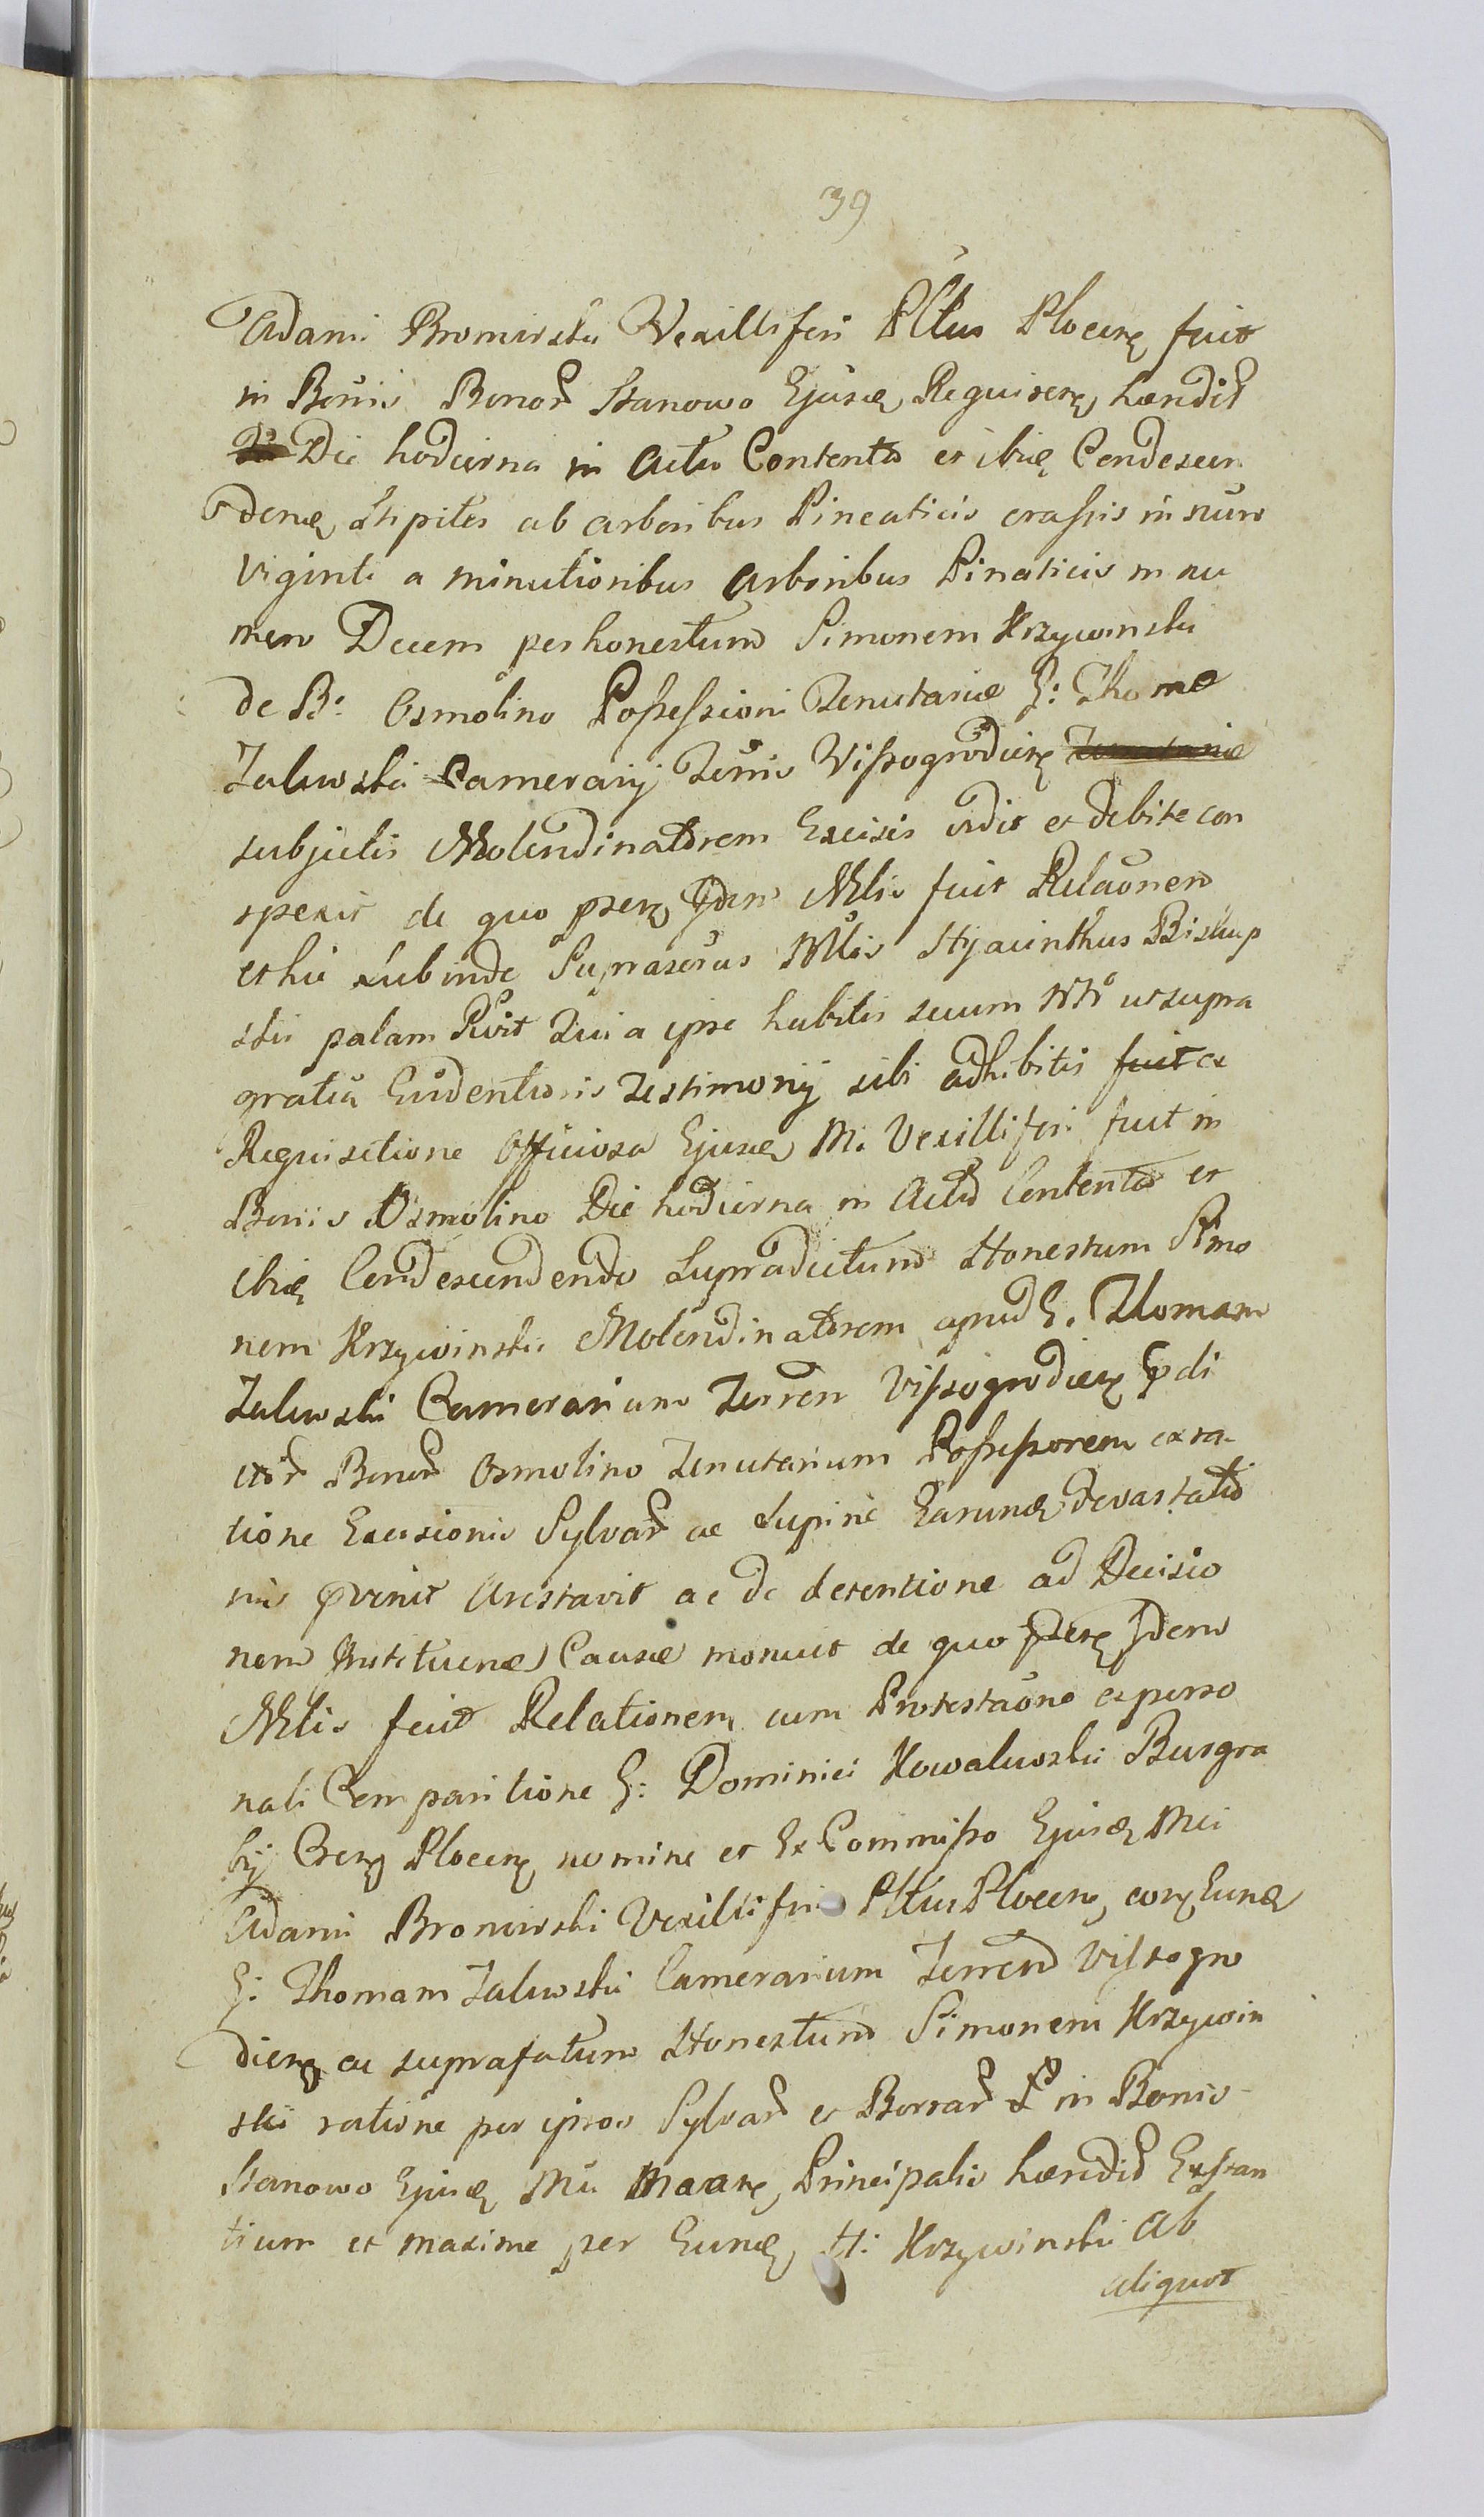 39
Adami Bromirski Vexilliferi Pltus Plocen fuit
in Bonis Bonor Stanowo Ejusd Requiren hændit
Die hodierna in Actu Contenta et ibid Condescen
dend Stipites ab arboribus Pineaticis crassis in num
Viginti a minutioribus Arboribus Pinaticis in nu
mero Decem per honestum Simonem Krzywinski
de B: Osmolino Possessioni Tenutariæ G: Thomæ
Zalewski Camerarij Terris Vissogrodien
subjectis Molendinatorem Excisis vidit et debite con
spexit de quo præn Idem Mlis fecit Relaonem
et hic subinde Suprascrus Mlis Hyacinthus Biskup
ski palam Rvit Quia ipse habitis secum NN ut supra
gratia Evidentioris Testimonij sibi adhibitis fuit ex
Requisitione Officiosa Ejusd M. Vexilliferi fuit in
Bonis Osmolino Die hodierna in Actu Contenta et
ibid Condescendendo Supradictum Honestum Simo
nem Krzywinski Molendinatorem apud G. Thomam
Zalewski Camerarium Terren Vissogrodien p di
ctor Bonor Osmolino Tenutarium Possessorem ex ra
tione Excisionis Sylvar ac Supinè Earund devastatio
nis pvenit Arestavit ac de detentione ad Decisio
nem Instituend Causæ monuit de quo Idem
Mlis fecit Relationem cum Protestaone ex perso
nali Comparitione G: Dominici Kowalewski Burgra
bij Cren Plocen nomine et Ex Commisso Ejusd Mci
Adami Bromirski Vexilliferi Pltus Plocen con Eund
G: Thomam Zalewski Camerarium Terren Vissogro
dien ac suprafatum Honestum Simonem Krzywin
ski ratione per ipsos Sylvar et Borrar in Bonis
Stanowo Ejusd Mci Principalis hændit Exstan
tium et maxime per Eund H: Krzywinski Ab
aliquot